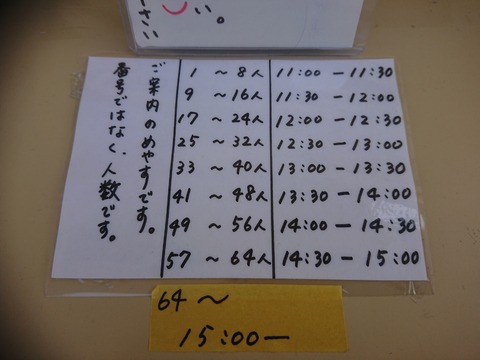 さい
い。
ご案内のめやすです。
番号ではなく、人数です。
1 ～ 8人 11:00 － 11:30
9 ～ 16人 11:30 － 12:00
17 ～ 24人 12:00 － 12:30
25 ～ 32人 12:30 － 13:00
33 ～ 40人 13:00 － 13:30
41 ～ 48人 13:30 － 14:00
49 ～ 56人 14:00 － 14:30
57 ～ 64人 14:30 － 15:00
64～
15:00－